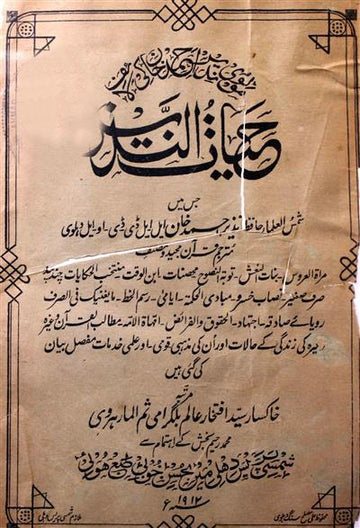 حیات النذیر
جس میں
شمس العلماء حافظ نذیر احمد خان ایل ایل ڈی ڈی۔او۔ایل دہلوی
مترجم قرآن مجید و مصنف
مراۃ العروس۔ بنات النعش۔ توبۃ النصوح محصنات۔ ابن الوقت منتخب الحکایات چند پند
صرف صغیر۔ نصاب خسرو۔ مبادی الحکمۃ۔ ایامیٰ۔ رسم الخط۔ مایغنیک فی الصرف
رویائے صادقہ۔ اجتہاد۔ الحقوق والفرائض۔ امہات الامۃ مطالب القرآن وغیرہ
وغیرہ کی زندگی کے حالات اور ان کی مذہبی قومی۔ اور علمی خدمات مفصل بیان
کی گئی ہیں
خاکسار سید افتخار عالم بلگرامی ثم المارہروی
محمد رحیم بخش کے اہتمام سے
شمسی پریس دہلی میں
۱۹۱۲ء